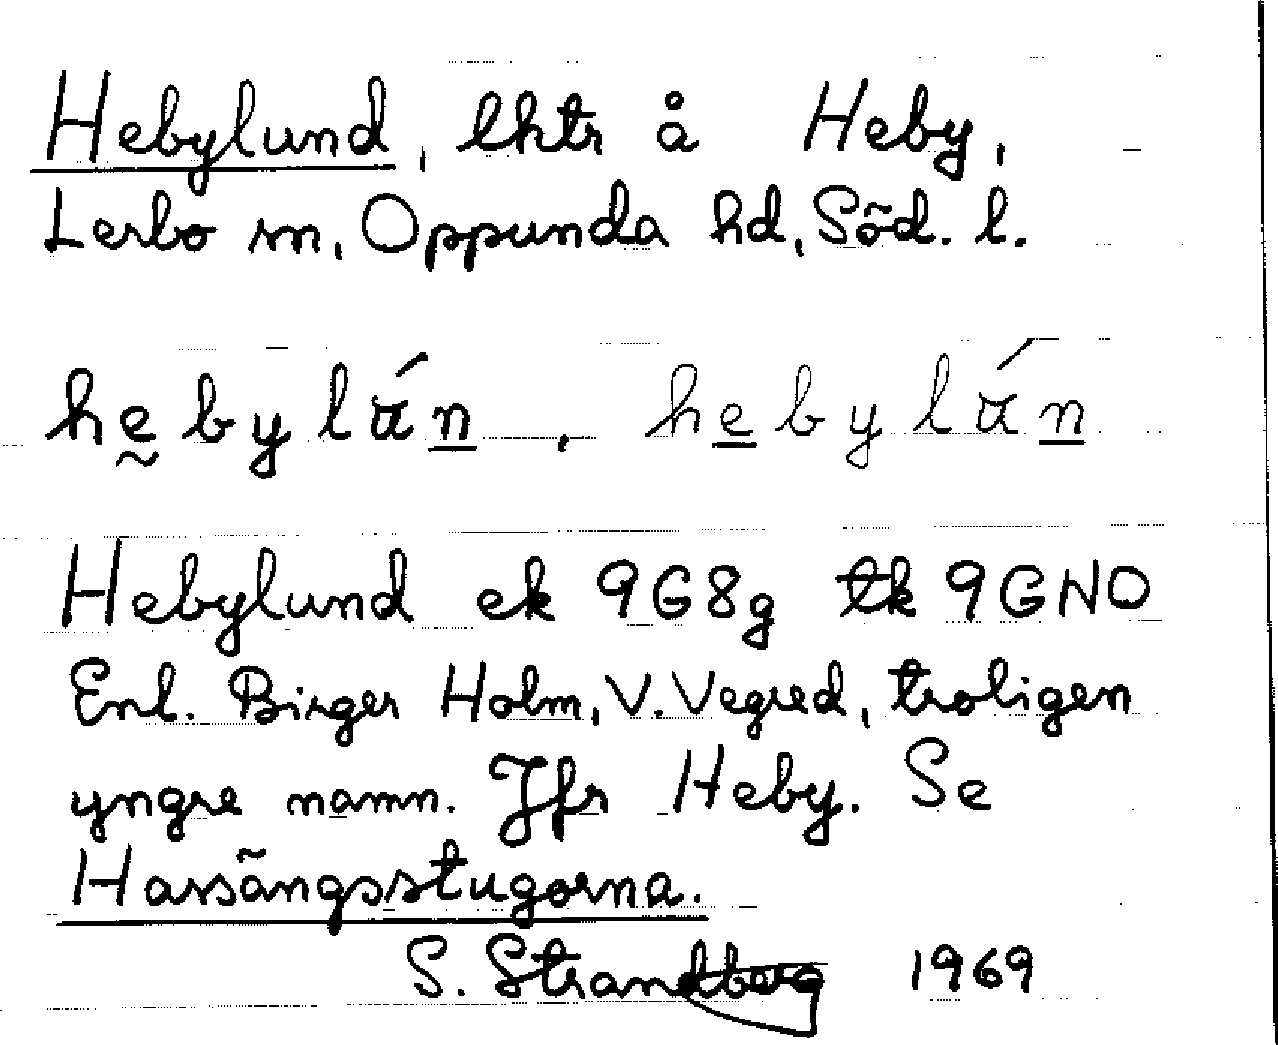 Hebylund, lhtr å Heby,
Lerbo sn, Oppunda hd, Söd. l.
hebylún, hebylún
Hebylund ek 9G8g tk 9GNO
Enl. Birger Holm, V. Vegred, troligen
yngre namn. Jfr Heby. Se
Harsängsstugorna.
S. Strandberg 1969